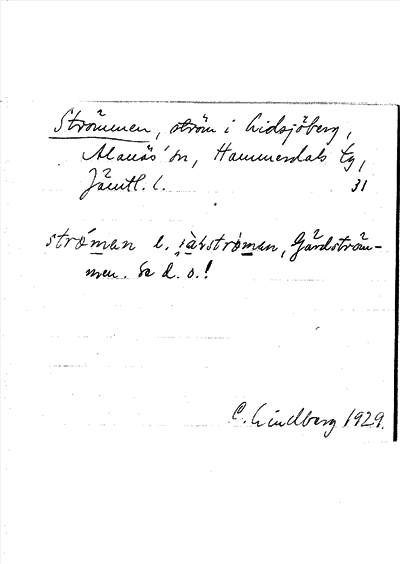 Strömmen, ström i Lidsjöberg,
Alanäs' sn, Hammerdals tg,
Jämtl. l. 31
strö́man l. jàlströ̀man, Gärdström-
men. Se d. o.!
C. Lindberg 1929.